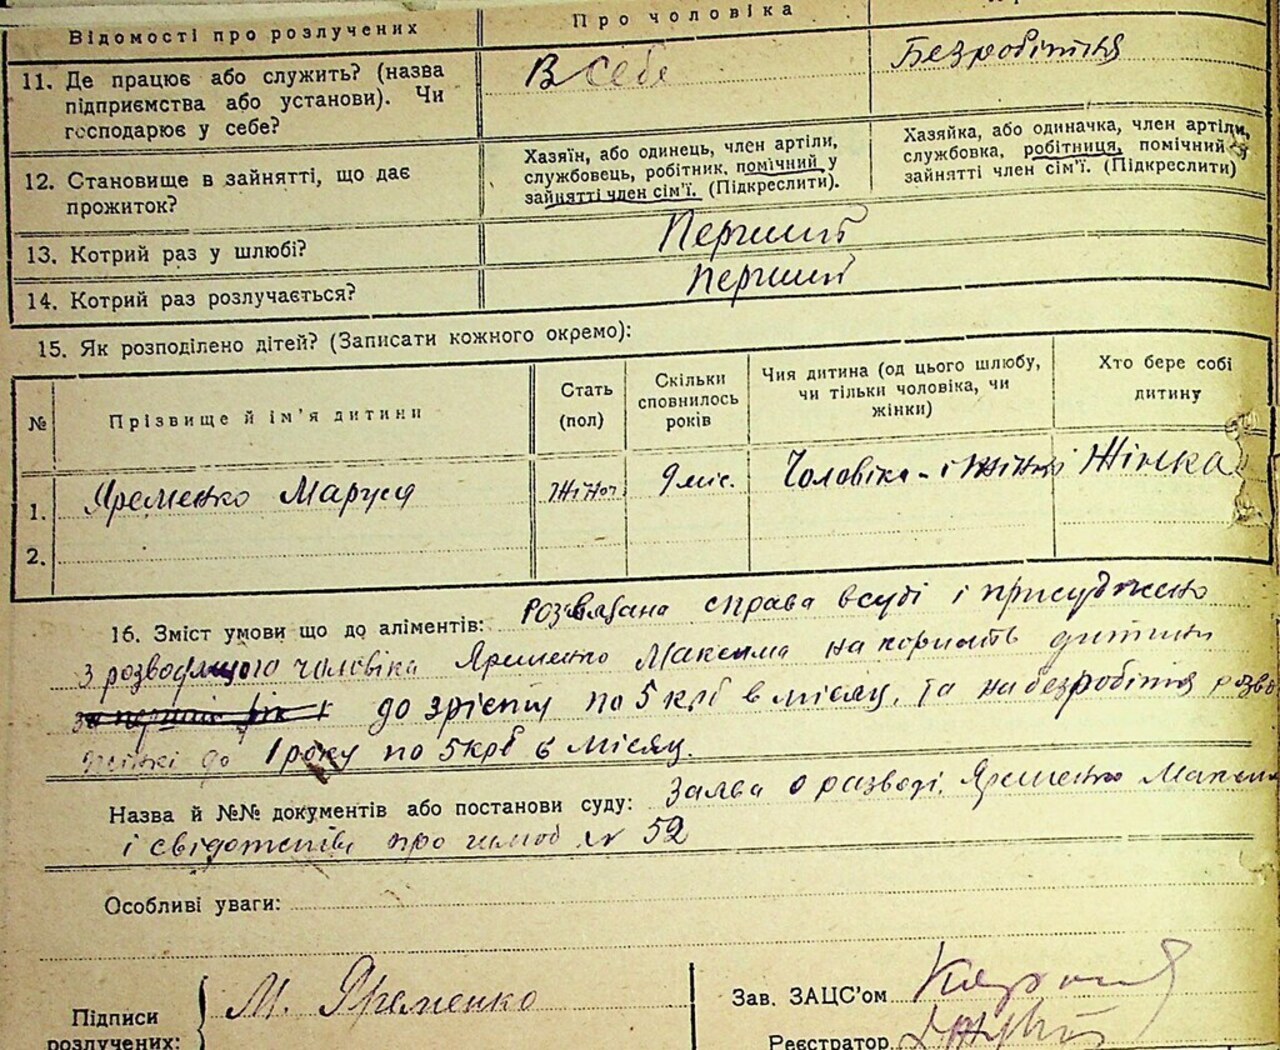 Відомості про розлучених
Про чоловіка
11. Де працює або служить? (назва
підприємства або установи). Чи
господарює у себе?
В себе
Безробітня
12. Становище в зайнятті, що дає
прожиток?
Хазяїн, або одинець, член артіли,
службовець, робітник, помічний у
зайнятті член сім'ї. (Підкреслити).
Хазяйка, або одиначка, член артіли,
службовка, робітниця, помічний у
зайнятті член сім'ї. (Підкреслити)
13. Котрий раз у шлюбі?
Перший
14. Котрий раз розлучається?
перший
15. Як розподілено дітей? (Записати кожного окремо):
№
Прізвище й ім'я дитини
Стать
(пол)
Скільки
сповнилось
років
Чия дитина (од цього шлюбу,
чи тільки чоловіка, чи
жінки)
Хто бере собі
дитину
1. Яременко Маруся
жіноч
9 міс.
Чоловіка - і жінки
Жінка
2.
16. Зміст умови що до аліментів: справа в суді і присуджено
з чоловіка Яременко Максима на користь дитини
за перший рік і до зрісту по 5 крб в місяць, та на безробіття
до 1 року по 5 крб в місяць.
Назва й №№ документів або постанови суду: Заява о разводі, Яременко
і про № 52
Особливі уваги:
Підписи
розлучених:
М. Яременко
Зав. ЗАЦС'ом
Реєстратор